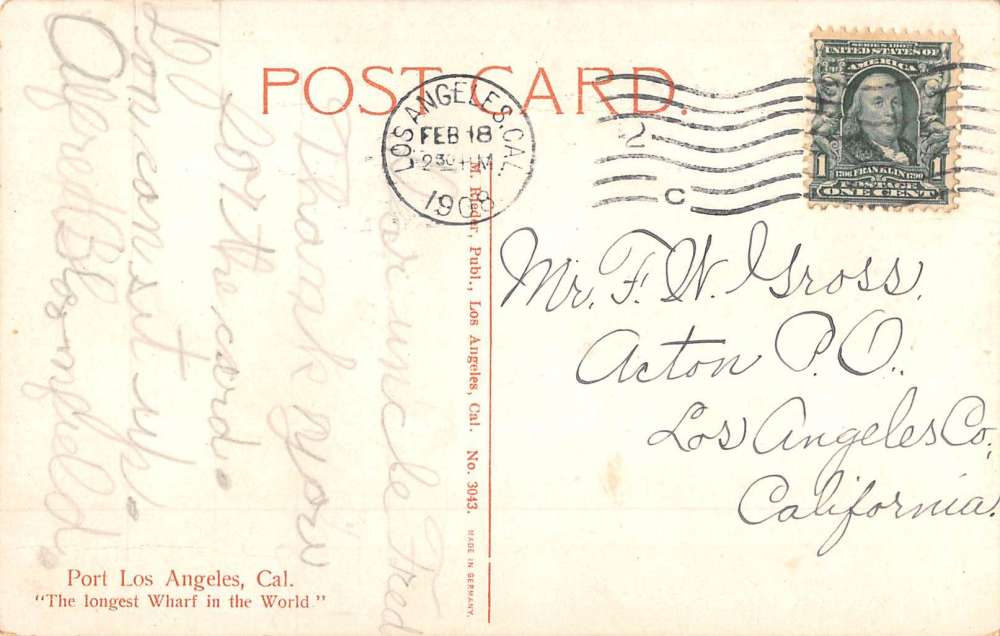 POST CARD.
LOS ANGELES, CAL.
FEB 18
2 30 PM
1908
2
C
SERIES 1902
UNITED STATES OF
AMERICA
1706 FRANKLIN 1790
1 POSTAGE 1
ONE CENT
Dear uncle Fred
Thank you
for the card.
Alfred Bloomfield.
Mr. F. W. Gross.
Acton P.O.
Los Angeles Co,
California.
M. Rieder, Publ., Los Angeles, Cal. No. 3043.
MADE IN GERMANY.
Port Los Angeles, Cal.
"The longest Wharf in the World"